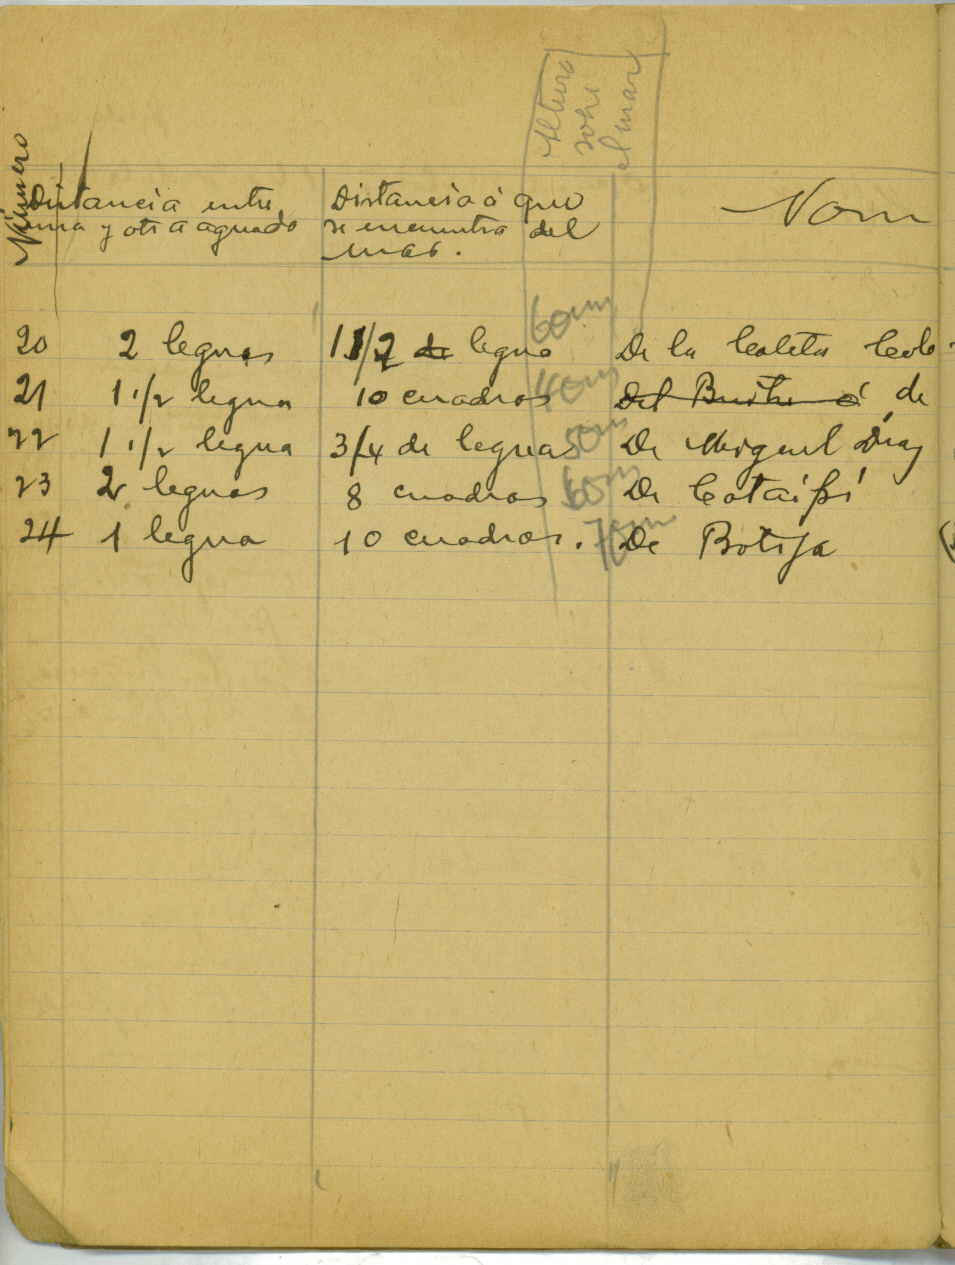 Altura
sobre
el mar
Número
Distancia entre
una y otra aguada
Distancia á que
se encuentra del
mar.
Nom
20 2 leguas 1 1/2 de legua 60 m De la Caleta Colo
21 1 1/2 legua 10 cuadras 40 m Del Buitre ó de
22 1 1/2 legua 3/4 de leguas 50 m De Miguel Diaz
23 2 leguas 8 cuadras 60 m De Cotaipi
24 1 legua 10 cuadras. 70 m De Botija